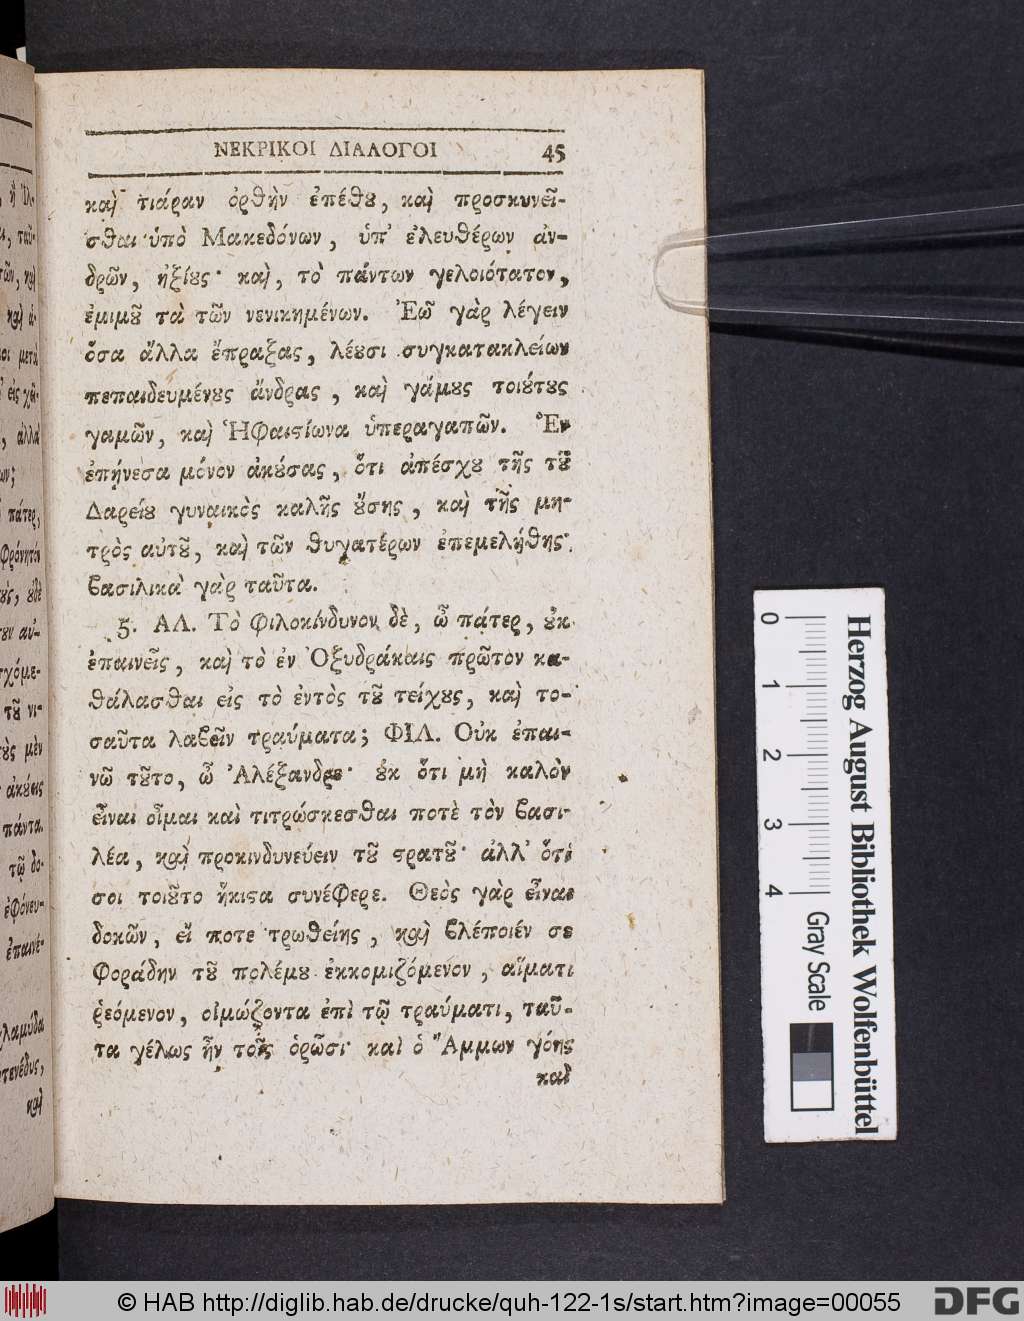 ΝΕΚΡΙΚΟΙ ΔΙΑΛΟΓΟΙ 45
καὶ τιάραν ὀρθὴν ἐπέθȣ, καὶ προσκυνεῖ-
σθαι ὑπὸ Μακεδόνων, ὑπ' ἐλευθέρων ἀν-
δρῶν, ἠξίȣς· καὶ, τὸ πάντων γελοιότατον,
ἐμιμȣ͂ τὰ τῶν νενικημένων. Ἐῶ γὰρ λέγειν
ὅσα ἄλλα ἔπραξας, λέȣσι συγκατακλείων
πεπαιδευμένȣς ἄνδρας, καὶ γάμȣς τοιȣ́τȣς
γαμῶν, καὶ Ἡφαιϛίωνα ὑπεραγαπῶν. Ἓν
ἐπῄνεσα μόνον ἀκȣ́σας, ὅτι ἀπέσχȣ τῆς τȣ͂
Δαρείȣ γυναικὸς καλῆς ȣ̓́σης, καὶ τῆς μη-
τρὸς αὐτȣ͂, καὶ τῶν θυγατέρων ἐπεμελήθης·
ϐασιλικὰ γὰρ ταῦτα.
5. ΑΛ. Τὸ φιλοκίνδυνον δὲ, ὦ πάτερ, ȣ̓κ
ἐπαινεῖς, καὶ τὸ ἐν Ὀξυδράκαις πρῶτον κα-
θάλασθαι εἰς τὸ ἐντὸς τȣ͂ τείχȣς, καὶ το-
σαῦτα λαϐεῖν τραύματα; ΦΙΛ. Οὐκ ἐπαι-
νῶ τȣ͂το, ὦ Ἀλέξανδρε· ȣ̓κ ὅτι μὴ καλὸν
εἶναι οἶμαι καὶ τιτρώσκεσθαι ποτὲ τὸν ϐασι-
λέα, καὶ προκινδυνεύειν τȣ͂ ϛρατȣ͂· ἀλλ' ὅτι
σοι τοιȣ͂το ἥκιϛα συνέφερε. Θεὸς γὰρ εἶναι
δοκῶν, εἴ ποτε τρωθείης, καὶ ϐλέποιέν σε
φοράδην τȣ͂ πολέμȣ ἐκκομιζόμενον, αἵματι
ῥεόμενον, οἰμώζοντα ἐπὶ τῷ τραύματι, ταῦ-
τα γέλως ἦν τοῖς ὁρῶσι· καὶ ὁ Ἄμμων γόης
καὶ
0
1
2
3
4
Gray Scale
Herzog August Bibliothek Wolfenbüttel
© HAB http://diglib.hab.de/drucke/quh-122-1s/start.htm?image=00055
DFG